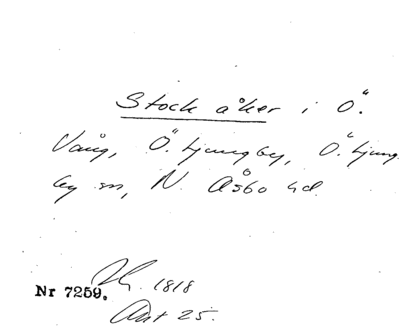 Stock åker i Ö.
Vång, Ö. Ljungby, Ö. Ljung-
by sn, N. Åsbo hd.
1818
Nr 7259.
Akt 25.